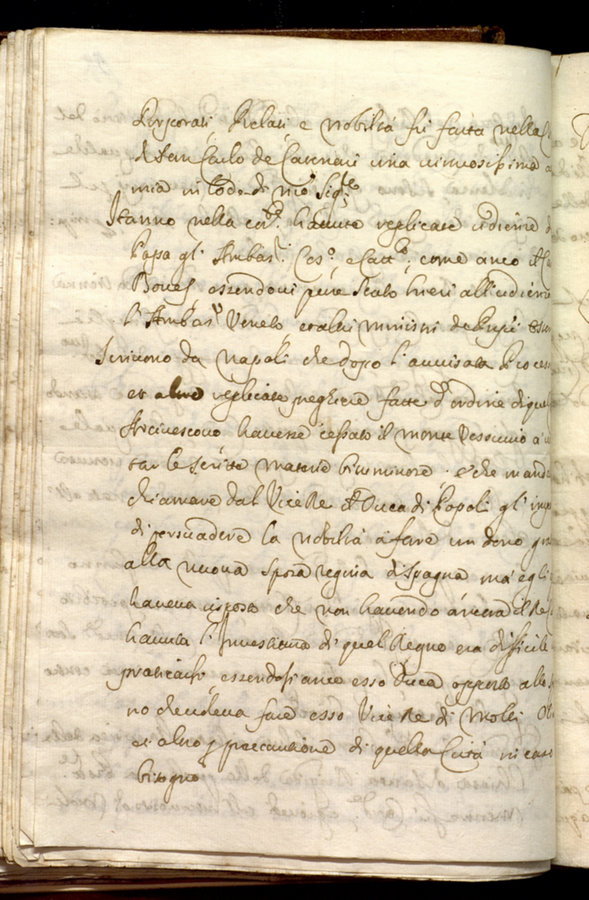 Porporati Prelati e nobiltà fù fatta nella C
di San Carlo de Catenari una virtuosissima a
mia in lode di n̄ro Sig.re
Hanno nella corr.te havute replicate udienze d
Papa gl' Ambas.ri Ces.o e Catt.co, come anco il Ca
essendovi pure stato hieri all'udienza
l'Ambas.re Veneto et altri ministri de Prñpi
Scrivono da Napoli che dopo l'avvisata Processi
et altre replicate preghiere fatte d'ordine di quel
Arcivescovo havesse cessato il monte Vessuvio à
tar le scritte materie bituminose. e che mand
chiamare dal ViceRe il Duca di Popoli gl' impo
di persuadere la nobiltà à fare un dono gra
alla nuova sposa regina di Spagna ma egli
haveva risposto che non havendo ancora il Re
havuta l'Investitura di quel Regno era difficile
praticarsi essendosi anco esso Duca opposto alle
no che voleva fare esso ViceRe di molti
et altro p precautione di quella Città in caso
bisogno